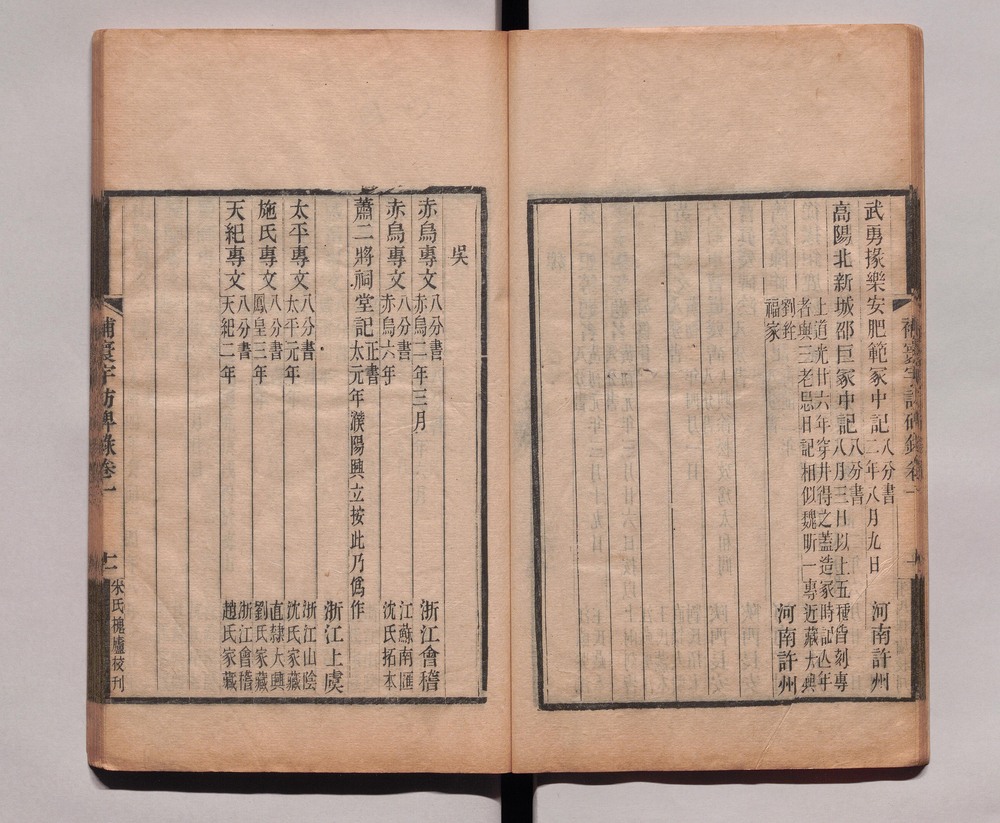 武勇掾樂安肥範冢中記八分書二年八月九日 河南許州
高陽北新城邵巨冢中記八分書八月三日以上五種皆刻專
上道光廿六年穿井得之蓋造冢時記亾年
者與三老忌日記相似魏昕一專近藏大興
劉銓福家 河南許州
補寰宇訪碑錄卷一
吳
赤烏專文八分書赤烏二年三月 浙江會稽
赤烏專文八分書赤烏六年 江蘇南匯沈氏拓本
蕭二將祠堂記正書太元年濮陽興立按此乃僞作 浙江上虞
太平專文八分書太平元年 浙江山陰沈氏家藏
施氏專文八分書鳳皇三年 直隸大興劉氏家藏
天紀專文八分書天紀二年 浙江會稽趙氏家藏
補寰宇訪碑錄卷一
十一 朱氏槐廬校刊